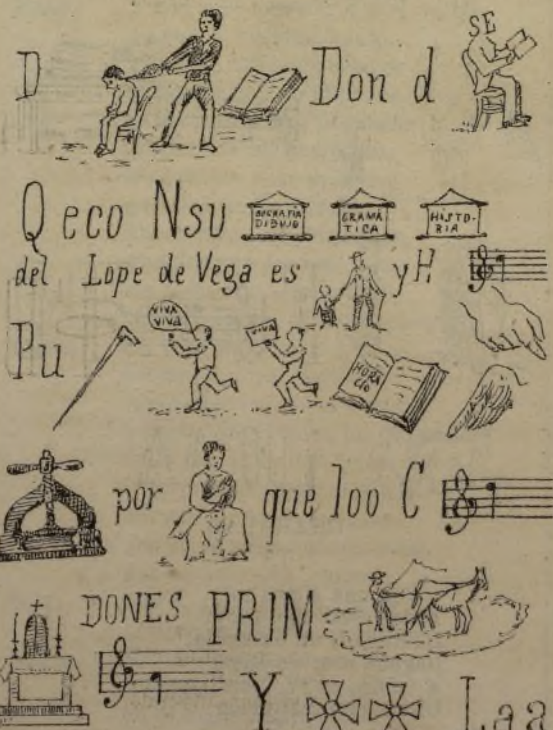 SE
D Don d
Q eco Nsu
DIBUJO
GRAMÁ-
TICA
HISTO-
RIA
del Lope de Vega es y H
Pu
VIVA
VIVA
VIVA
HORA
CIO
por que loo C
DONES PRIM
Y Laa